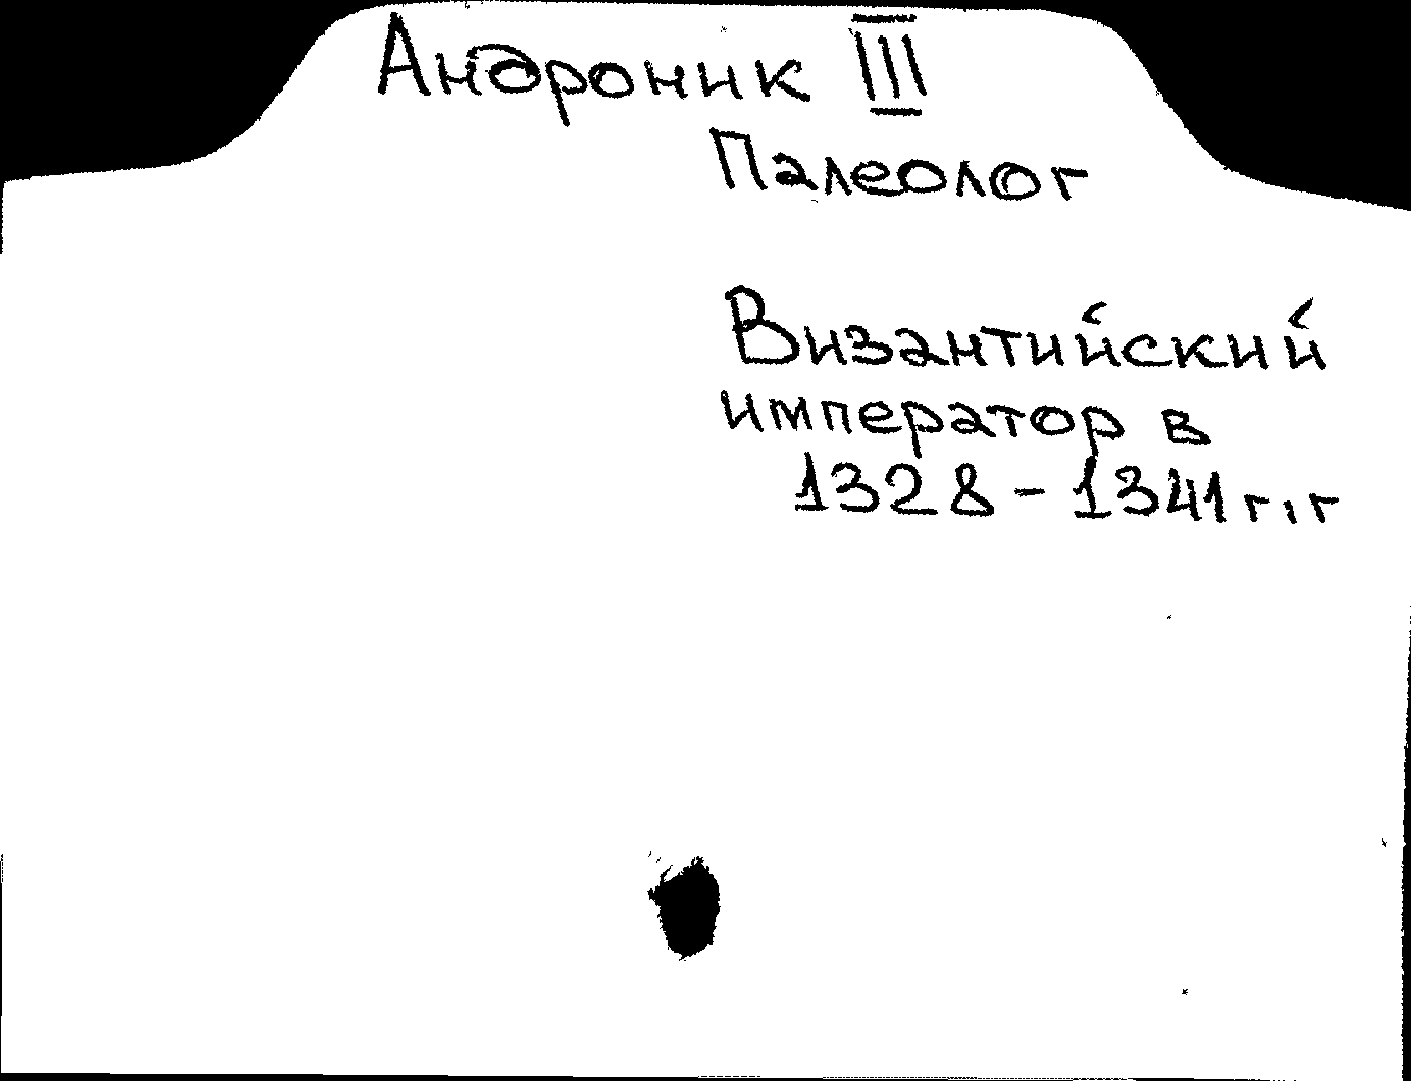 Андроник III
Палеолог
Византийский
император в
1328-1341 г.г